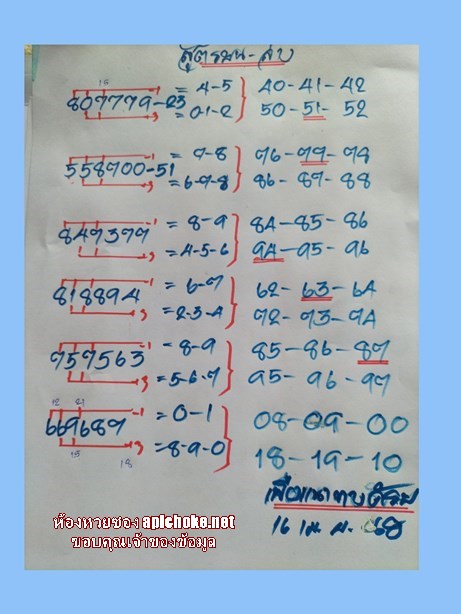 สูตรบน-ล่าง
15
807779-23 = 4-5 40-41-42
= 0-1-2 50-51-52
558700-51 = 7-8 76-77-78
= 6-7-8 86-87-88
847377 = 8-9 84-85-86
= 4-5-6 94-95-96
818894 = 6-7 62-63-64
= 2-3-4 72-73-74
757563 = 8-9 85-86-87
= 5-6-7 95-96-97
12 21
669687 = 0-1 08-09-00
= 8-9-0 18-19-10
15 18
16 เม.ย. 58
ห้องหวยซอง apichoke.net
ขอบคุณเจ้าของข้อมูล